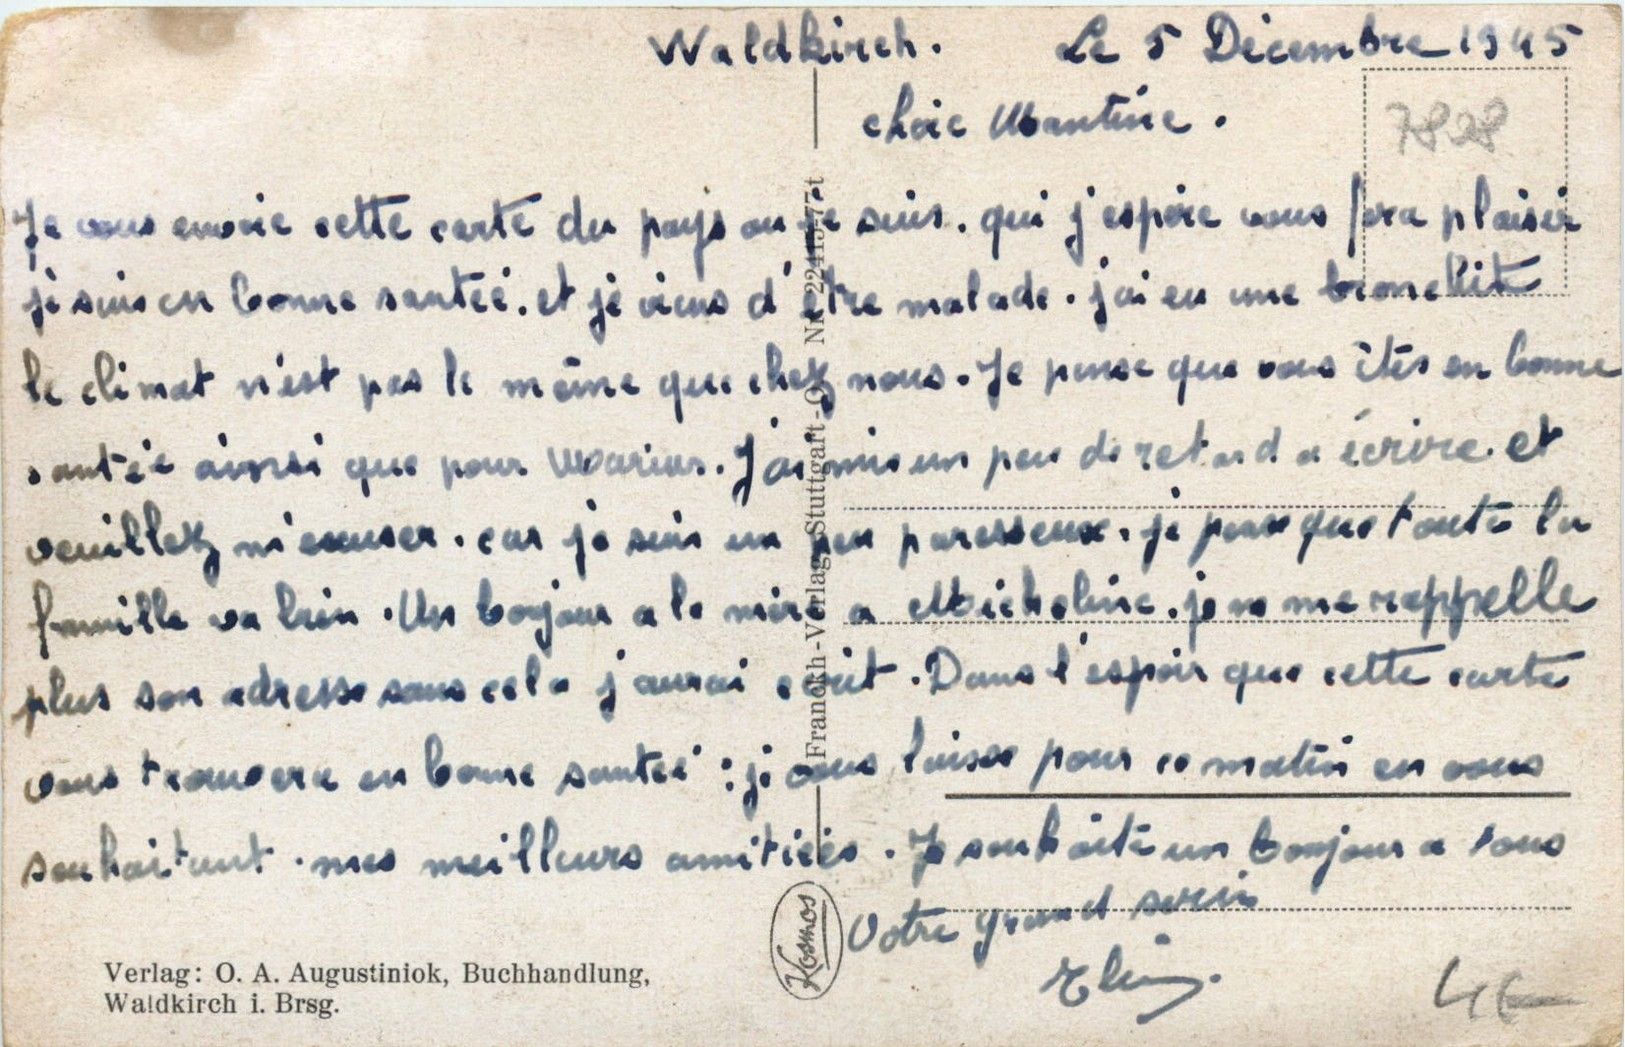 Waldkirch. Le 5 Décembre 1945
7828
Je vous envoie cette carte du pays ou je suis. qui j'espère vous fera plaisir
je suis en bonne santée. et je viens d'être malade. j'ai eu une bronchite
le climat n'est pas le même que chez nous. Je pense que vous êtes en bonne
santée ainsi que pour Marius. J'ai mis un peu de retard a écrire. et
veuillez m'excuser. car je suis un peu paresseux. je pense que toute la
famille va bien. Un bonjour a la mère a Micheline. je ne me rappelle
plus son adresse sans cela j'aurai écrit. Dans l'espoir que cette carte
vous trouvera en bonne santée : je vous laisse pour ce matin en vous
souhaitant. mes meilleurs amitiées. Je souhaite un bonjour a tous
Votre grand
Franckh-Verlag, Stuttgart-O Nr. 22415-77t
Kosmos
Verlag: O. A. Augustiniok, Buchhandlung,
Waldkirch i. Brsg.